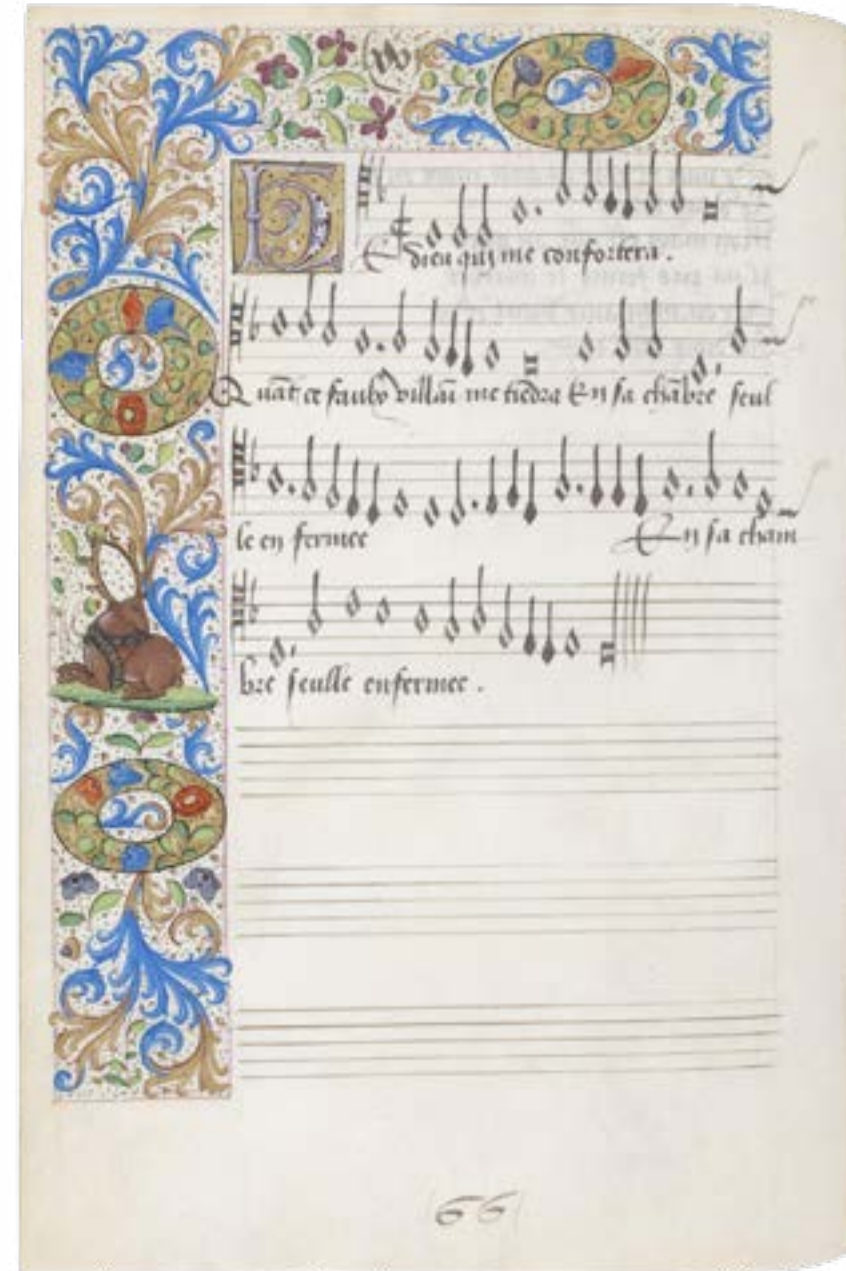 HE dieu qui me confortera .
Quāt ce faulx villāi me tiēdra En sa chābre seul
le en fermee En sa cham
bre seulle enfermee .
66